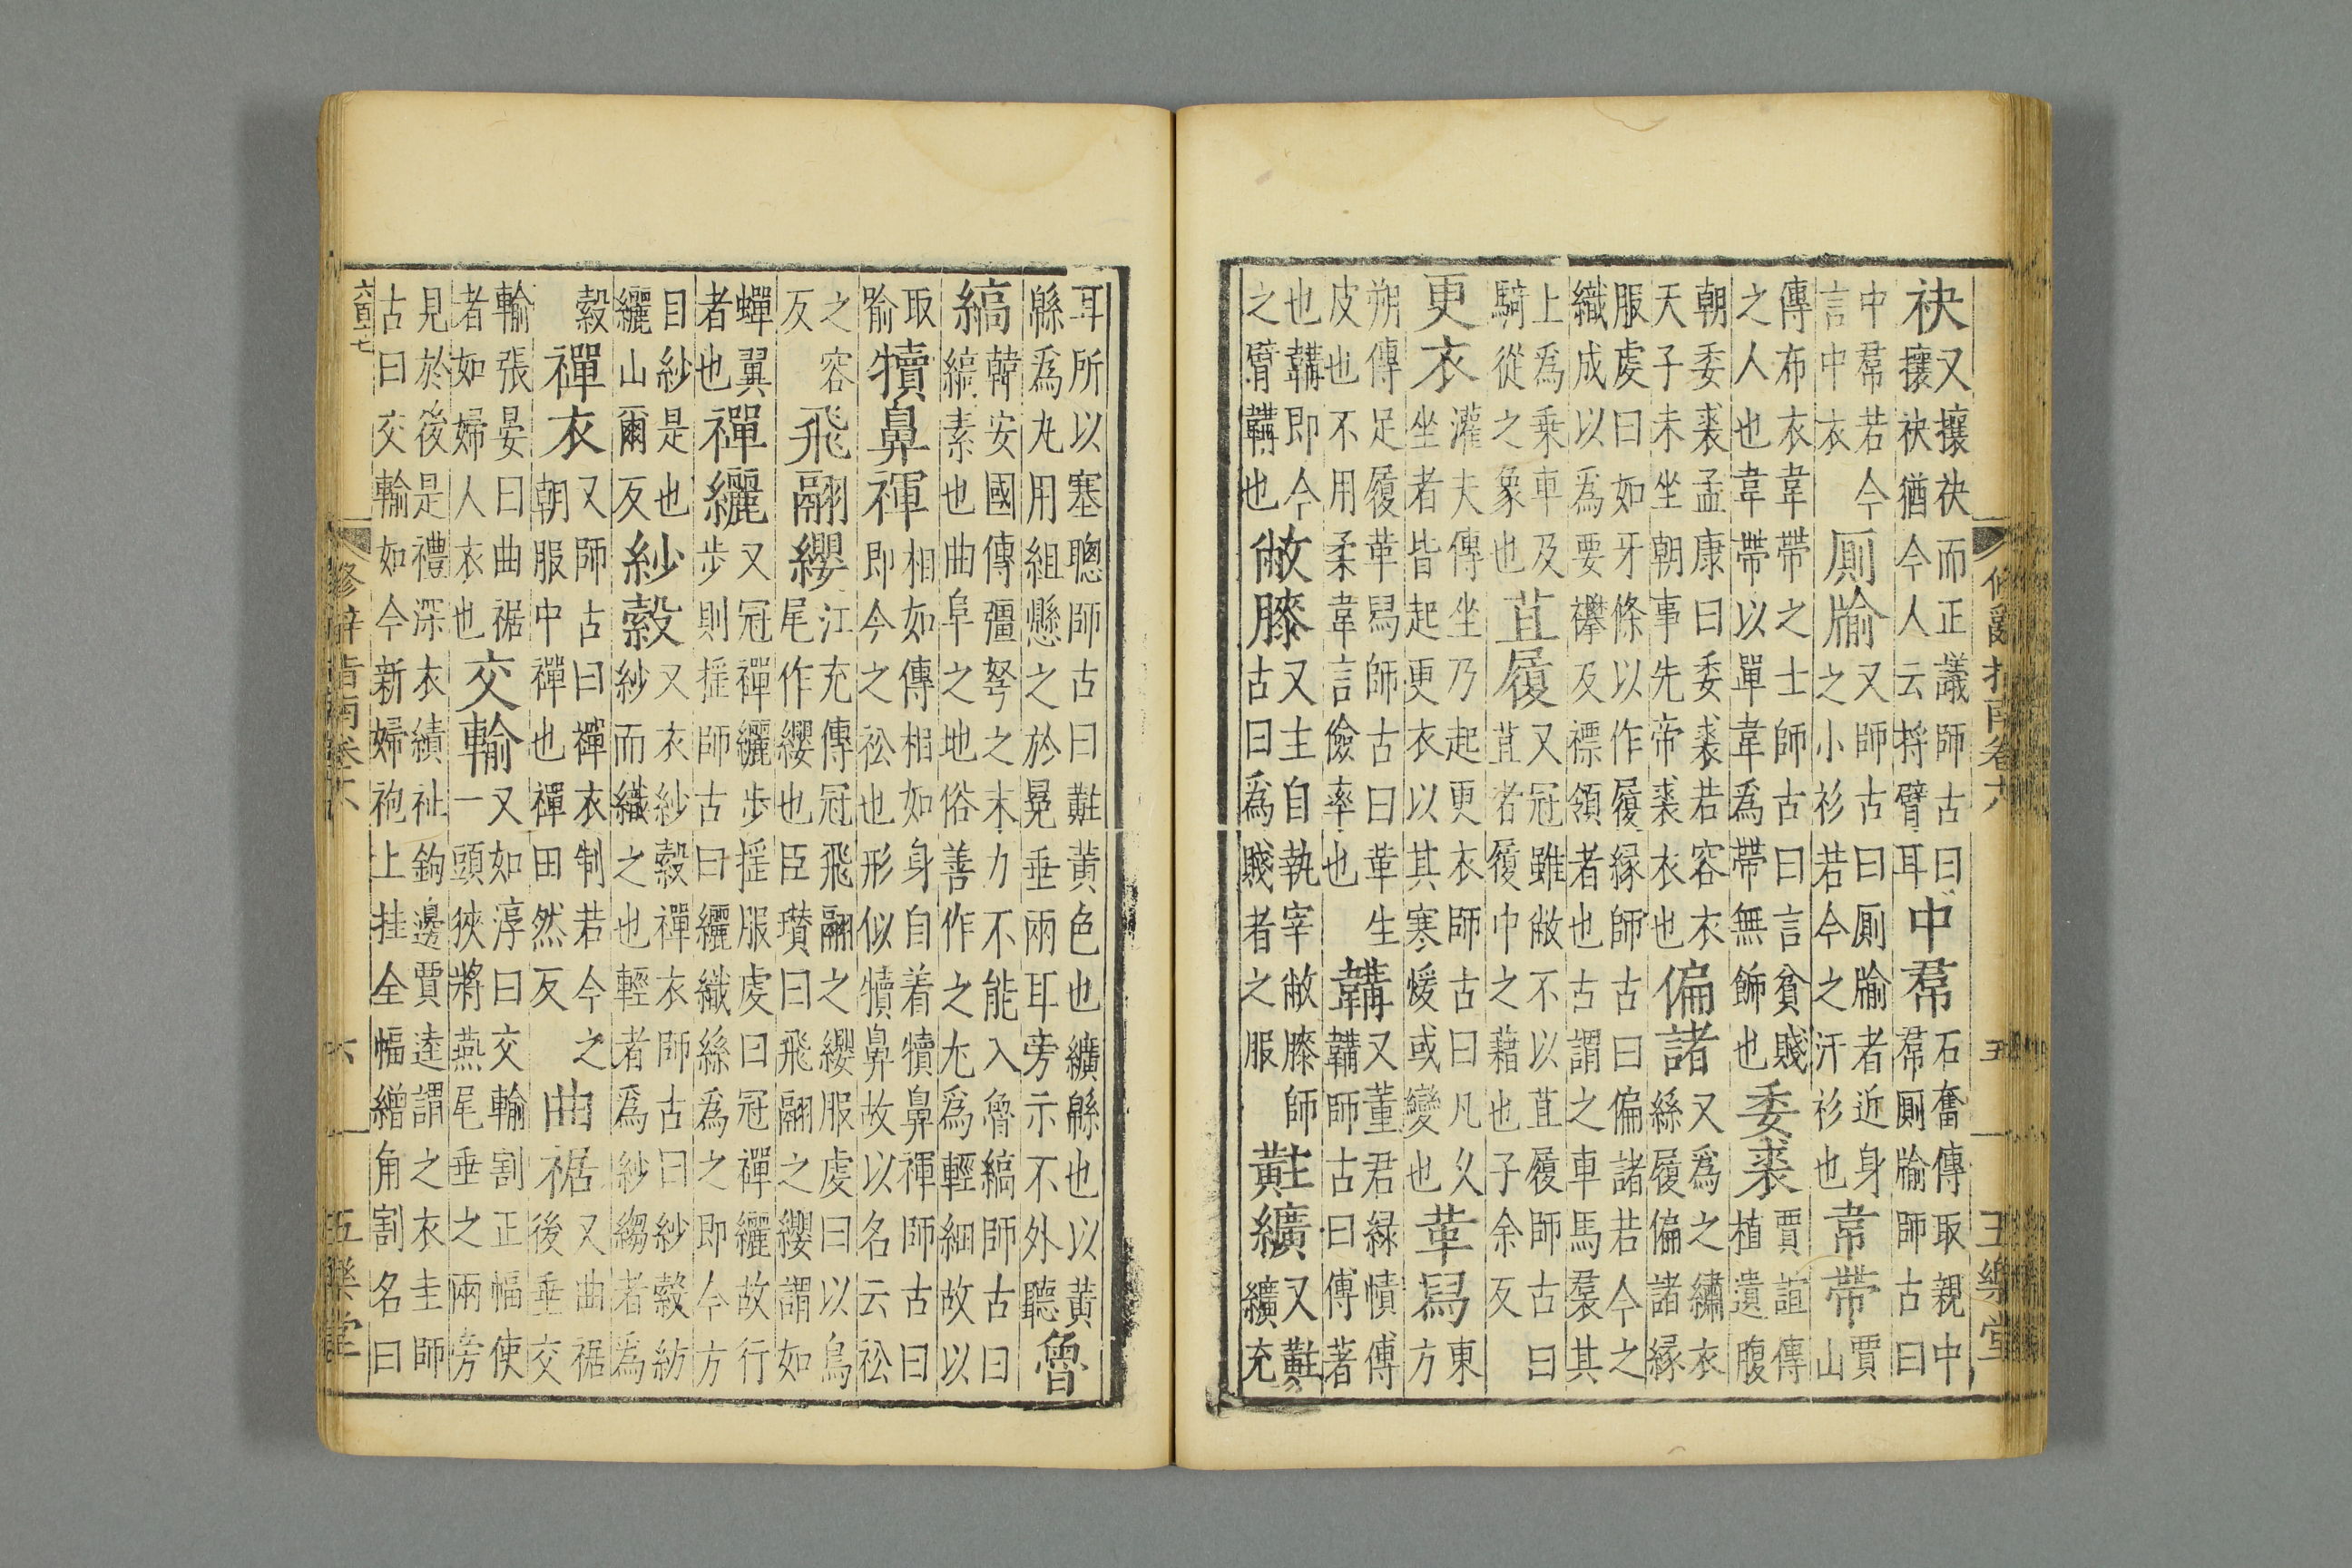 袂又攘袂而正議師古曰攘袂猶今人云捋臂耳中帬石奮傳取親中帬厠牏師古曰
中帬若今言中衣厠牏又師古曰厠牏者近身之小衫若今之汗衫也韋帶賈山
傳布衣韋帶之士師古曰言貧賤之人也韋帶以單韋爲帶無飾也委裘賈誼傳植遺腹
朝委裘孟康曰委裘若容衣天子未坐朝事先帝裘衣也偏諸又爲之繡衣絲履偏諸緣
服虔曰如牙條以作履緣師古曰偏諸若今之織成以爲要襻及褾領者也古謂之車馬裠其
上爲乗車及騎從之象也苴履又冠雖敝不以苴履師古曰苴者履巾之藉也子余反
更衣灌夫傳坐乃起更衣師古曰凡久坐者皆起更衣以其寒煖或變也革舄東方
朔傳足履革舄師古曰革生皮也不用柔韋言儉率也韝又董君緑幘傅韝師古曰傅著
也韝即今之臂韝也敝膝又主自執宰敝膝師古曰爲賤者之服黈纊又黈纊充
修辭指南卷六 五 五樂堂
耳所以塞聰師古曰黈黃色也纊緜也以黃緜爲丸用組懸之於冕垂兩耳旁示不外聽魯
縞韓安國傳彊弩之末力不能入魯縞師古曰縞素也曲阜之地俗善作之尤爲輕細故以
取喻犢鼻褌相如傳相如身自着犢鼻褌師古曰即今之衳也形似犢鼻故以名云衳
之容反飛翮纓江充傳冠飛翮之纓服虔曰以鳥尾作纓也臣瓚曰飛翮之纓謂如
蟬翼者也襌纚又冠襌纚步摇服虔曰冠襌纚故行步則摇師古曰纚織絲爲之即今方
目紗是也纚山爾反紗縠又衣紗縠襌衣師古曰紗縠紡紗而織之也輕者爲紗縐者爲
縠襌衣又師古曰襌衣制若今之朝服中襌也襌田然反曲裾又曲裾後垂交
輸張晏曰曲裾者如婦人衣也交輸又如淳曰交輸割正幅使一頭狹將燕尾垂之兩旁
見於後是禮深衣續衽鉤邊賈逵謂之衣圭師古曰交輸如今新婦袍上挂全幅繒角割名曰
修辭指南卷六 六 五樂堂